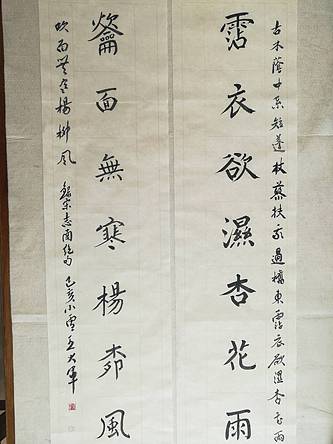 古木蔭中系短蓬杖藜扶我過橋東霑衣欲湿杏花雨
霑衣欲濕杏花雨
龡面無寒楊桺風
吹面無寒楊柳風 錄宋志南絶句 己亥小雪王大軍